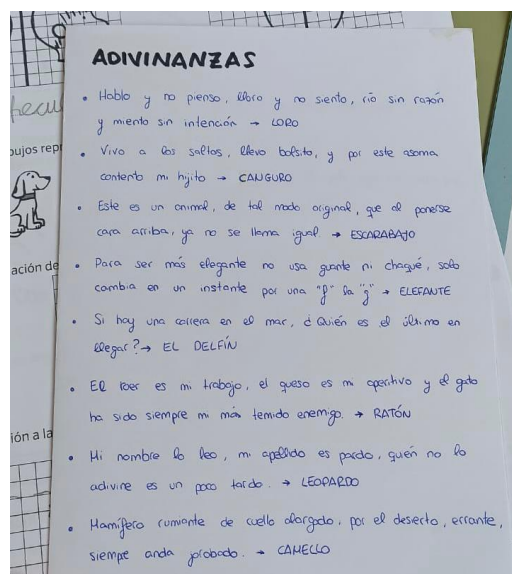 ADIVINANZAS
• Hablo y no pienso, lloro y no siento, río sin razón
y miento sin intención → LORO
• Vivo a los saltos, llevo bolsito, y por este asoma
contento mi hijito → CANGURO
• Este es un animal, de tal modo original, que al ponerse
cara arriba, ya no se llama igual → ESCARABAJO
• Para ser más elegante no usa guante ni chaqué, solo
cambia en un instante por una "f" la "g" → ELEFANTE
• Si hay una carrera en el mar, ¿Quién es el último en
llegar? → EL DELFÍN
• El roer es mi trabajo, el queso es mi aperitivo y el gato
ha sido siempre mi más temido enemigo. → RATÓN
• Mi nombre lo leo, mi apellido es pardo, quén no lo
adivine es un poco tardo. → LEOPARDO
• Mamífero rumiante de cuello alargado, por el desierto, errante,
siempre anda jorobado. → CAMELLO
bujos repr
ación de
ión a la